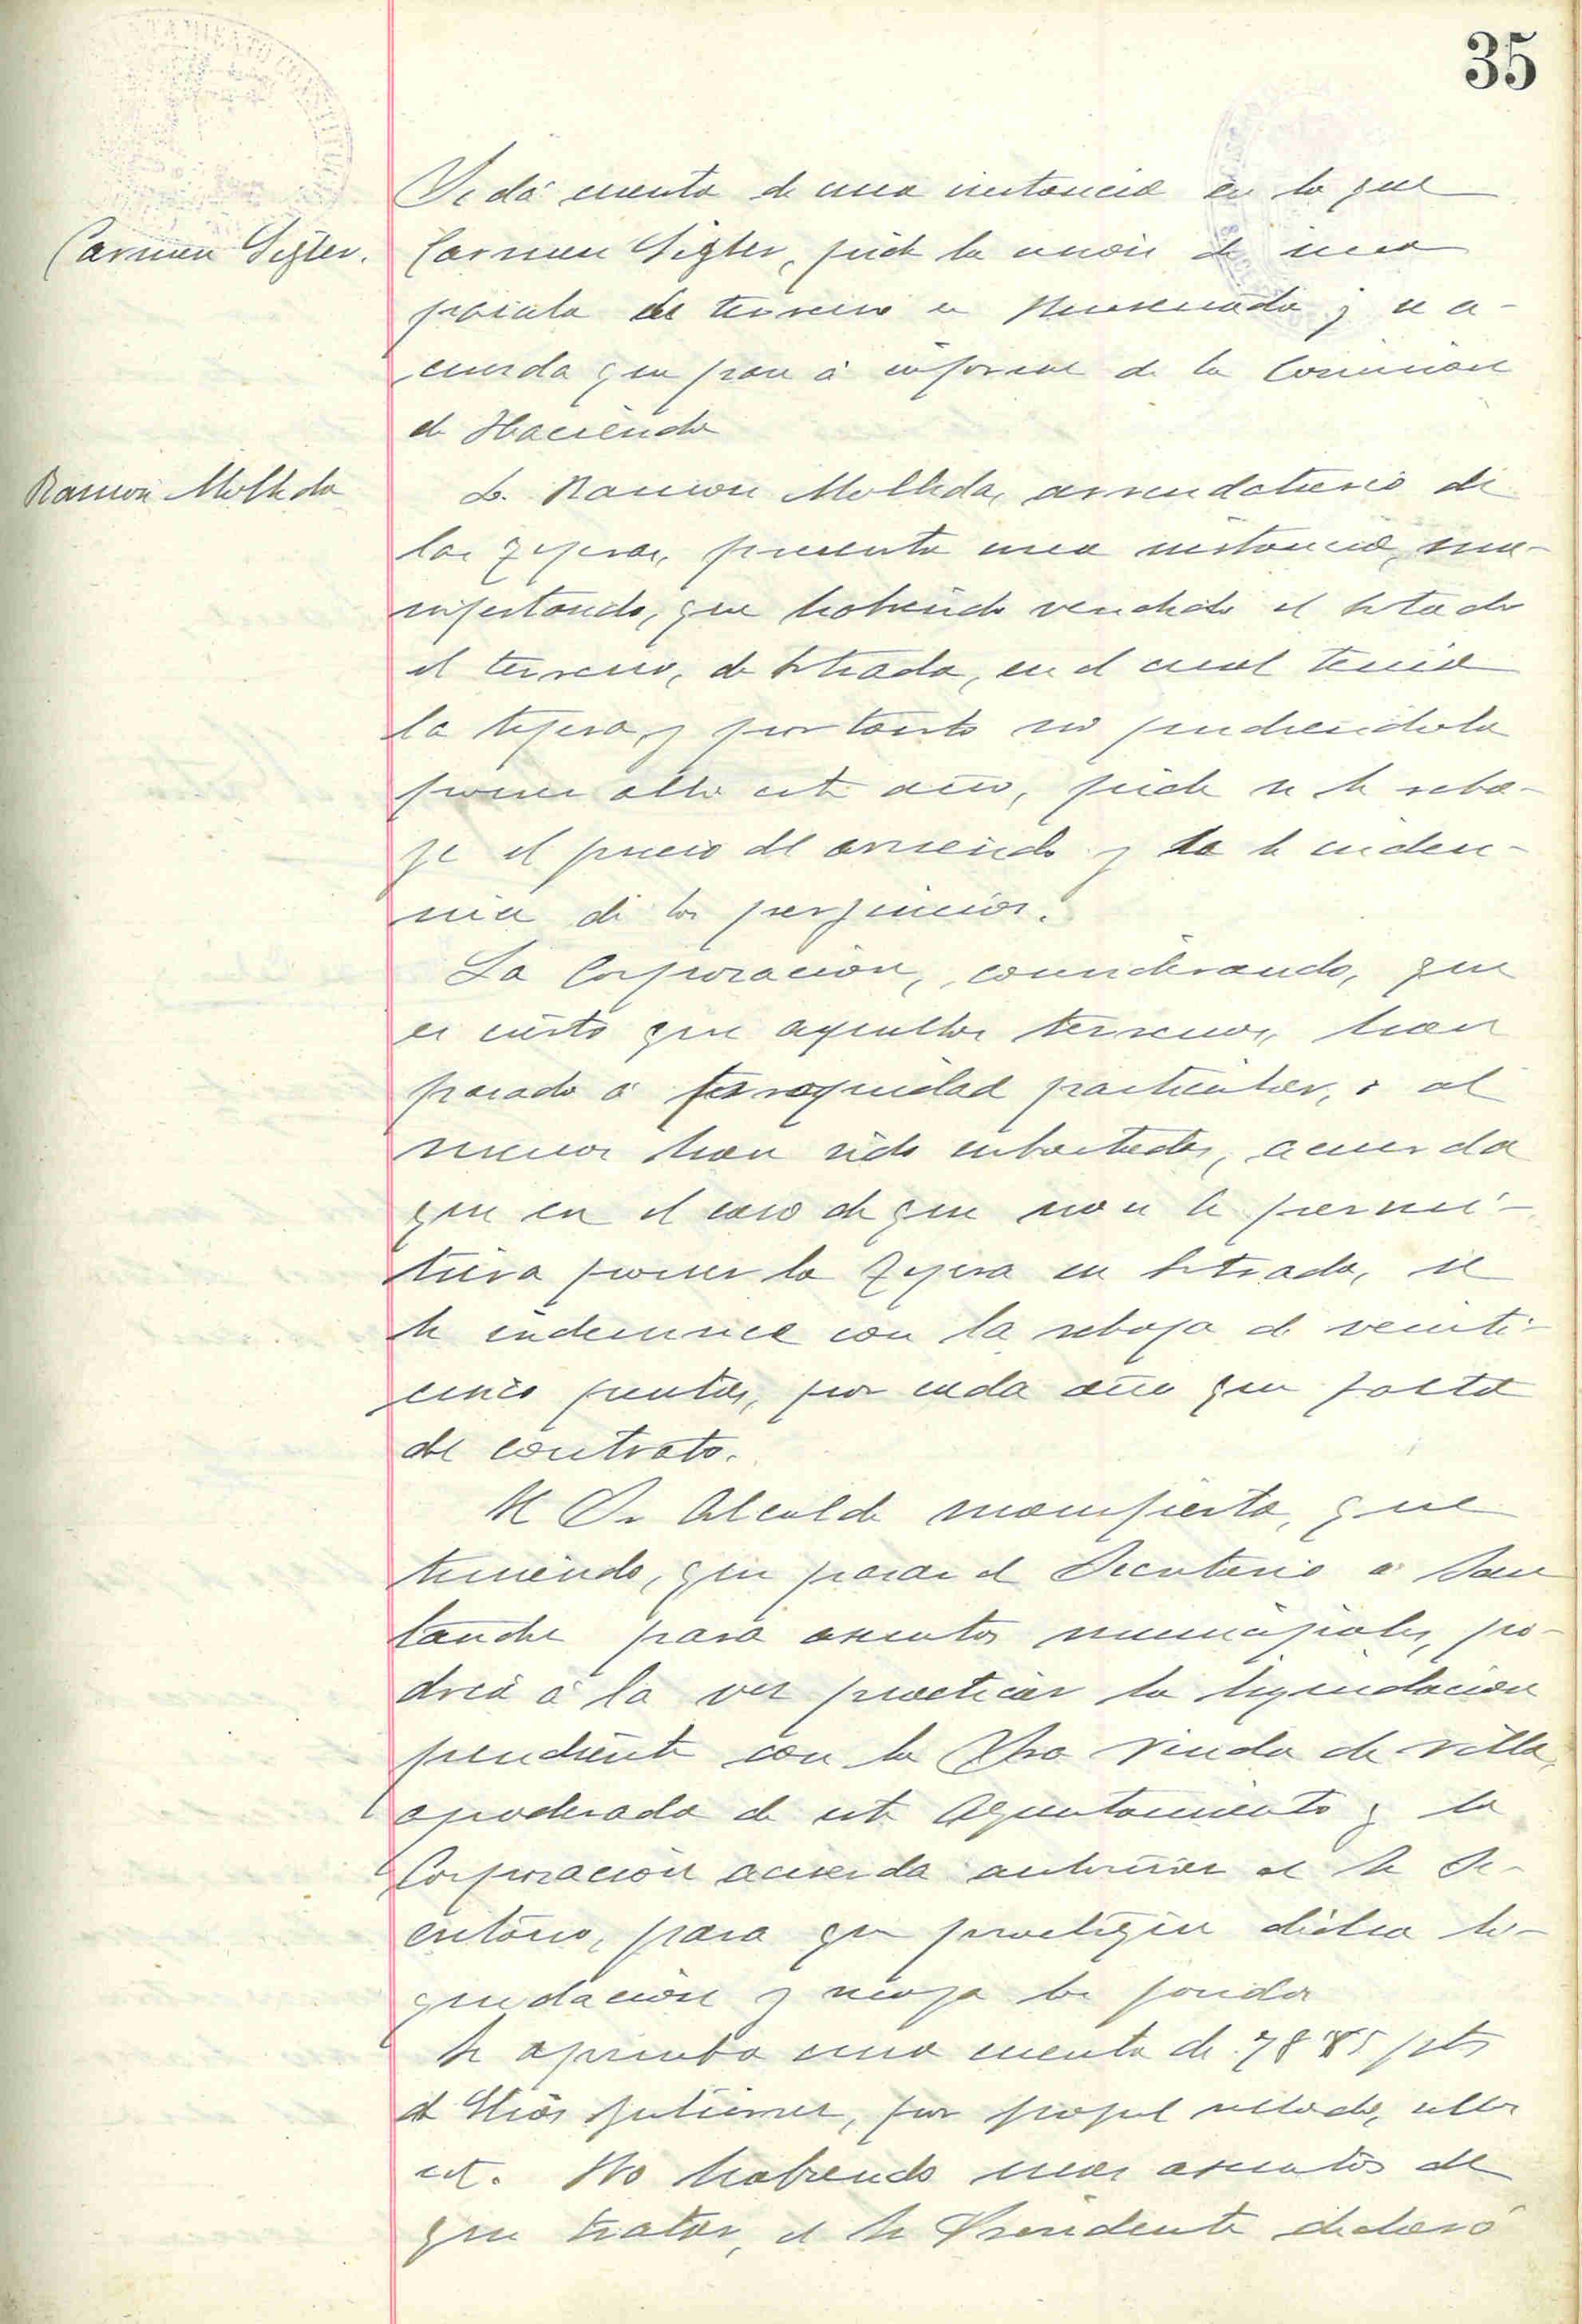 35
Se dá cuenta de una instancia en la que
Carmen Sigler.
Carmen Sigler, pide la unión de una
parcela de terreno en y se a-
cuerda que pase á informe de la Comision
de Hacienda
Ramón Mollda
D. Ramon Molleda, arrendatario de
las gejeras, presenta una instancia, ma-
nifestando, que habiendo vendido el Estado
el terreno, de Estrada, en el cual tenia
la tejera, y por tanto no pudiendola
poner alli este año, pide se le reba-
je el precio del arriendo y se le indem-
nice de los perjuicios.
La Corporacion, considerando, que
es cierto que aquellos terrenos, han
pasado á propiedad particular, ó al
menos han sido subastados, acuerda
que en el caso de que no se le permi-
tiera poner la gejera en Estrada, se
le indemnice con la rebaja de veinti-
cinco pesetas, por cada año que falta
de contrato.
El Sr Alcalde manifiesta, que
teniendo, que pasar el Secretario a San
tander para asuntos municipales, po-
dria á la vez practicar la liquidacion
pendiente con la Sra viuda de Villa,
apoderada de este Ayuntamiento y la
Corporacion acuerda autorizar al Sr Se-
cretario, para que practique dicha li-
quidacion y recoja los fondos
Se aprueba una cuenta de 78'85 pts
de Gutierrez, por papel sellado, sellos
ect. No habiendo mas asuntos de
que tratar, el Sr Presidente declaró